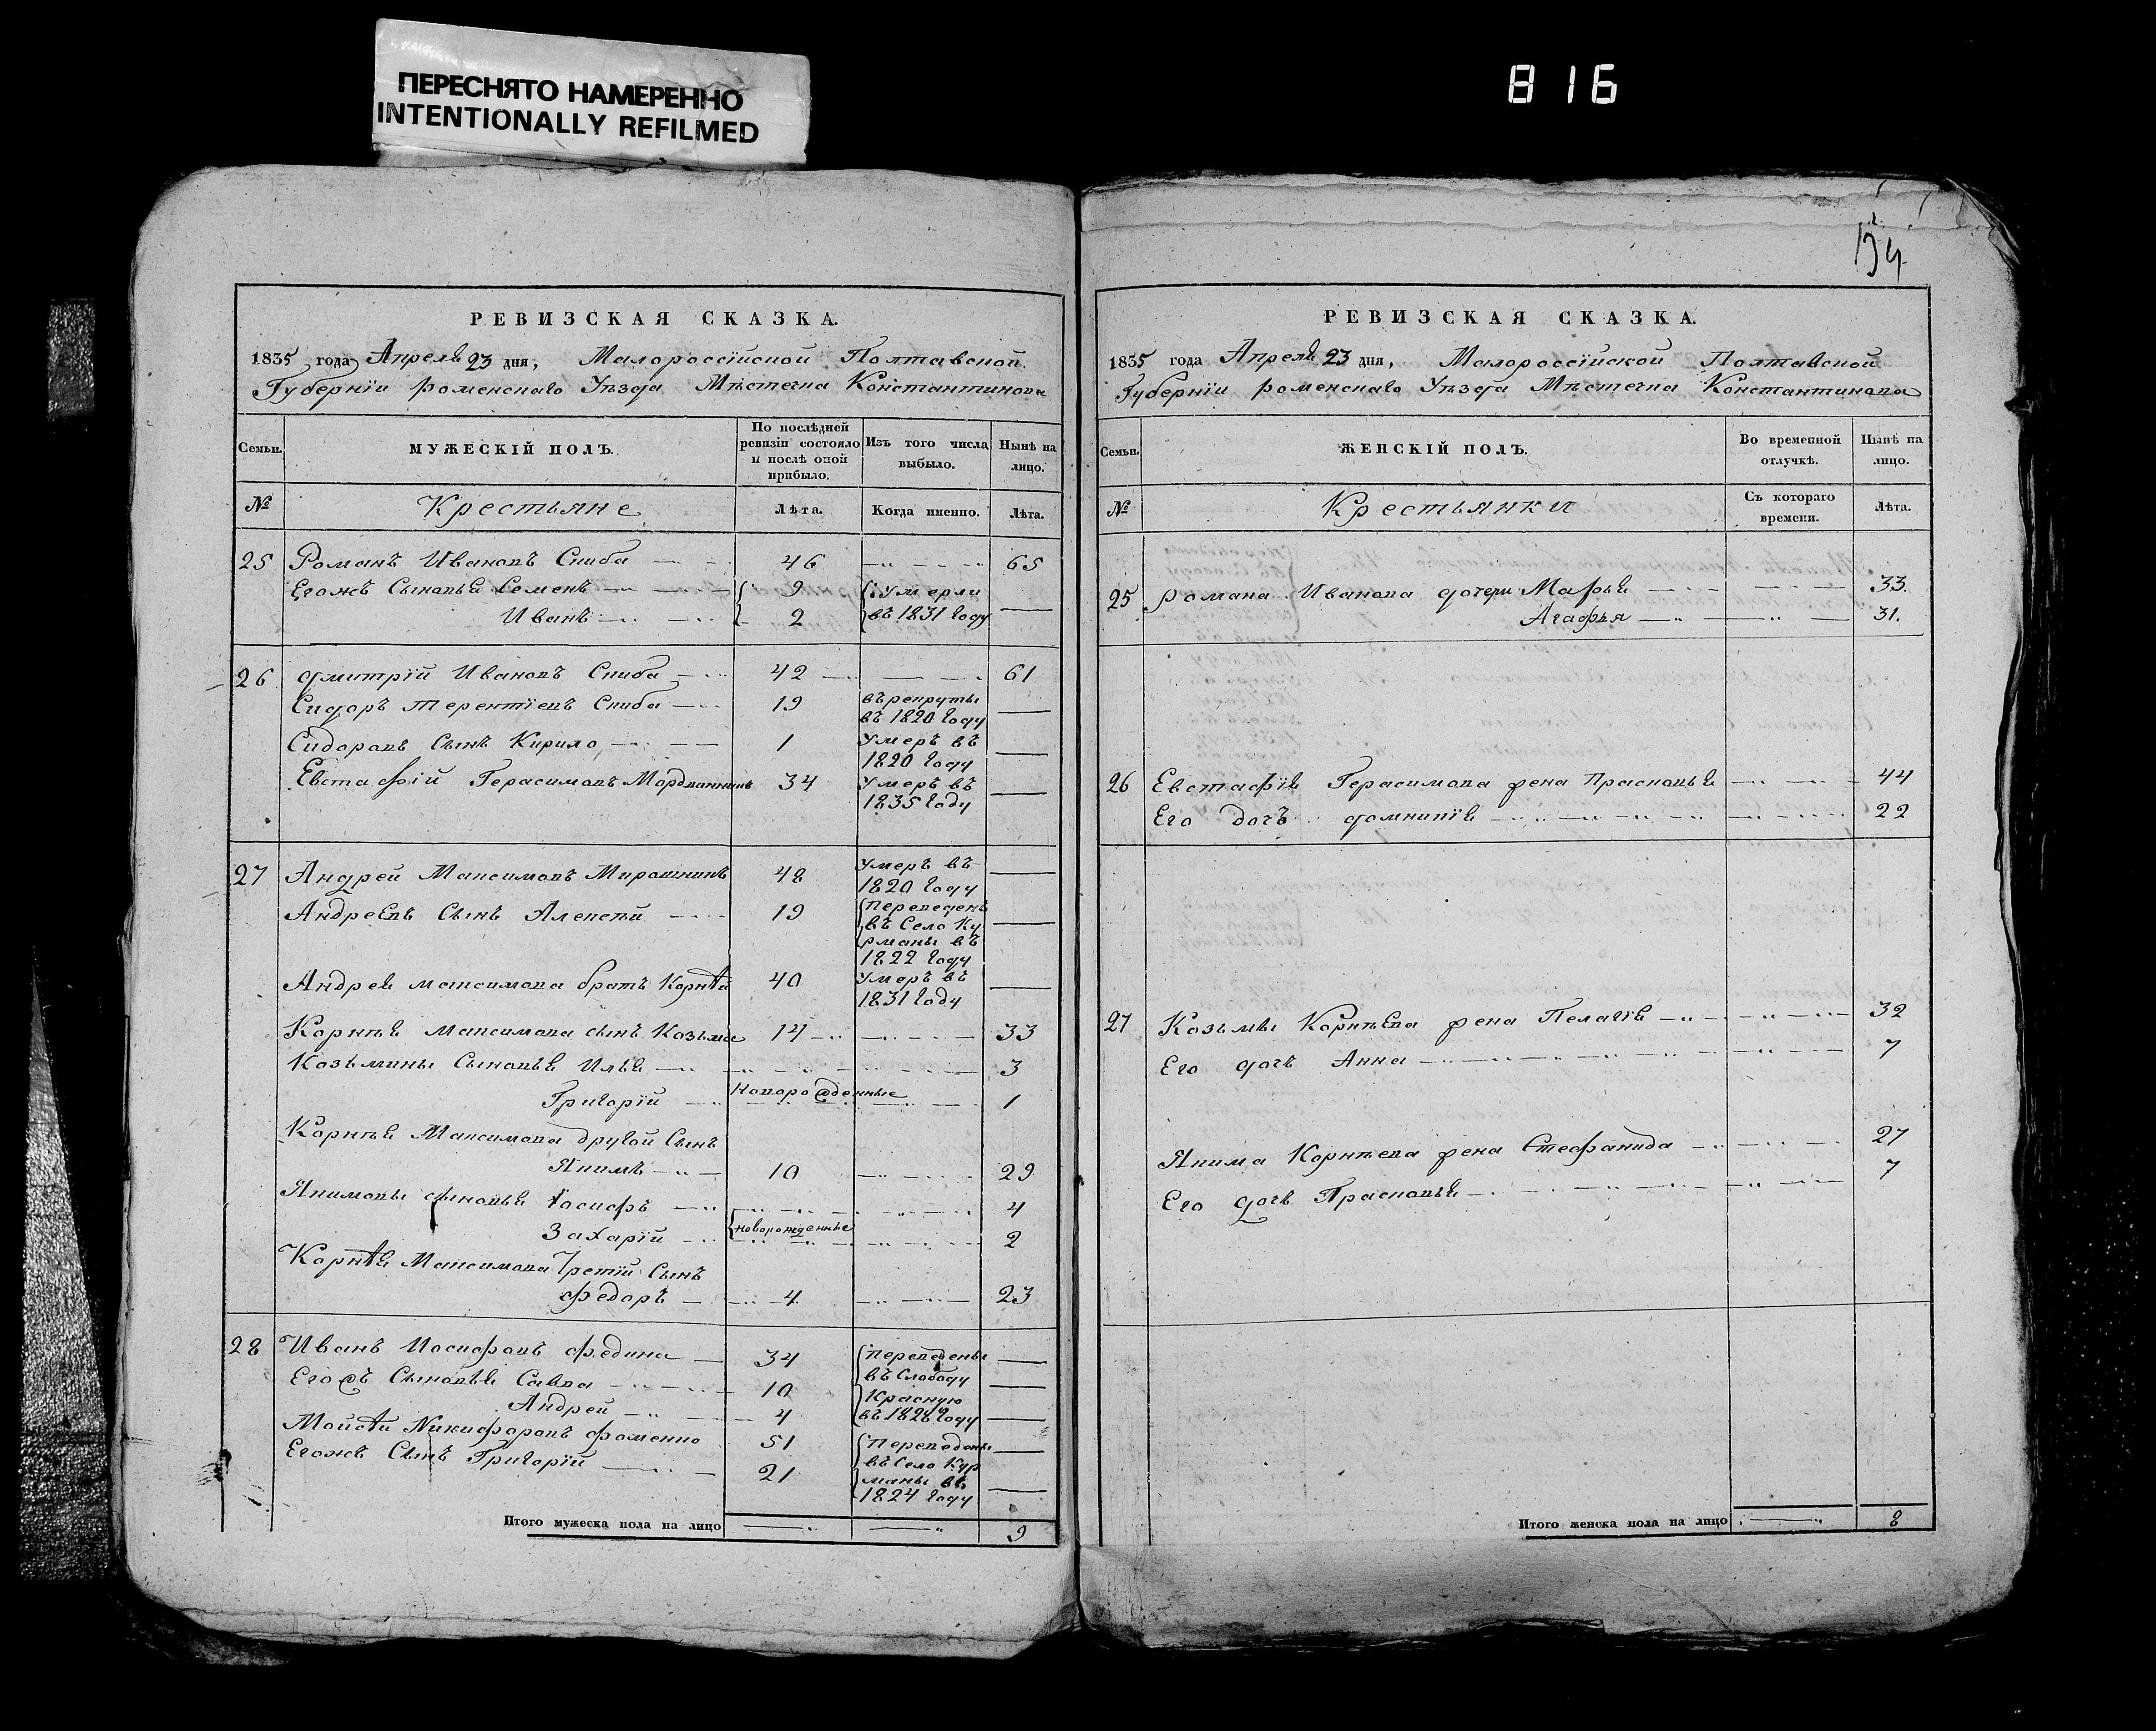 ПЕРЕСНЯТО НАМЕРЕННО
INTENTIONALLY REFILMED
816
134
РЕВИЗСКАЯ СКАЗКА.
1835 года Апреля 23 дня, Малороссїйской Полтавской
Губернїи роменскаго Уѣзда Мѣстечка Константинова
Семьи.
МУЖЕСКІЙ ПОЛЪ.
По послѣдней ревизіи состояло и послѣ оной прибыло.
Изъ того числа выбыло.
Нынѣ на лицо.
№ Крестьяне Лѣта. Когда именно. Лѣта.
25 Романъ Ивановъ Скиба 46 65
Егожъ Сыновья Семенъ 9 Умерли
Иванъ 2 въ 1831 году
26 Дмитрїй Ивановъ Скиба 42 61
Сидоръ Терентїевъ Скиба 19 въ рекруты
въ 1820 году
Сидоровъ Сынъ Кирило 1 Умеръ въ
1820 году
Евстафїй Герасимовъ 34 Умеръ въ
1835 году
27 Андрей Максимовъ Мирошникъ 48 Умеръ въ
1820 году
Андреевъ Сынъ Алексѣй 19 Переведенъ
въ Село Ку
рманы въ
1822 году
Андрея максимова братъ Корнѣй 40 Умеръ въ
1831 году
Корнѣя максимова сынъ Козьма 14 33
Козьмины Сыновья Илья 3
Григорїй новорожденные 1
Корнѣя Максимова другой Сынъ
Якимъ 10 29
Якимовы сыновья Іосифъ 4
Захарїй новорожденные 2
Корнѣя Максимова Третїй Сынъ
Федоръ 4 23
28 Иванъ Иосифовъ 34 Переведены
Егожъ Сыновья Савва 10 въ Слободу
Красную
Андрей 4 въ 1828 году
Мойсѣй Никифоровъ фоменко 51 Переведены
Егожъ Сынъ Григорїй 21 въ Село Кур
маны въ
1824 году
Итого мужеска пола на лицо 9
РЕВИЗСКАЯ СКАЗКА.
1835 года Апреля 23 дня, Малороссїйской Полтавской
Губернїи роменскаго Уѣзда Мѣстечка Константинова
Семьи.
ЖЕНСКІЙ ПОЛЪ.
Во временной отлучкѣ.
Нынѣ на лицо.
№ Крестьянки Съ котораго времени. Лѣта.
25 романа Иванова дочери Марья 33.
Агафья 31.
26 Евстафїя Герасимова жена Прасковья 44
Его дочъ домникїя 22
27 Козьмы Корнѣева жена Пелагїя 32
Его дочъ Анна 7
Якима Корнѣева жена Стефанида 27
Его дочъ Прасковья 7
Итого женска пола на лицо 8